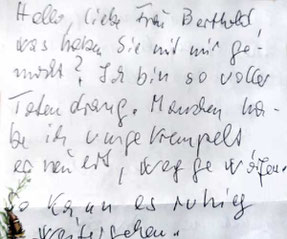 Hallo, liebe Frau Berthold,
was haben Sie mit mir ge-
macht? Ich bin so voller
Tatendrang. Manches ha-
be ich umgekrempelt
erneuert, weggeworfen.
So kann es ruhig
weitergehen.